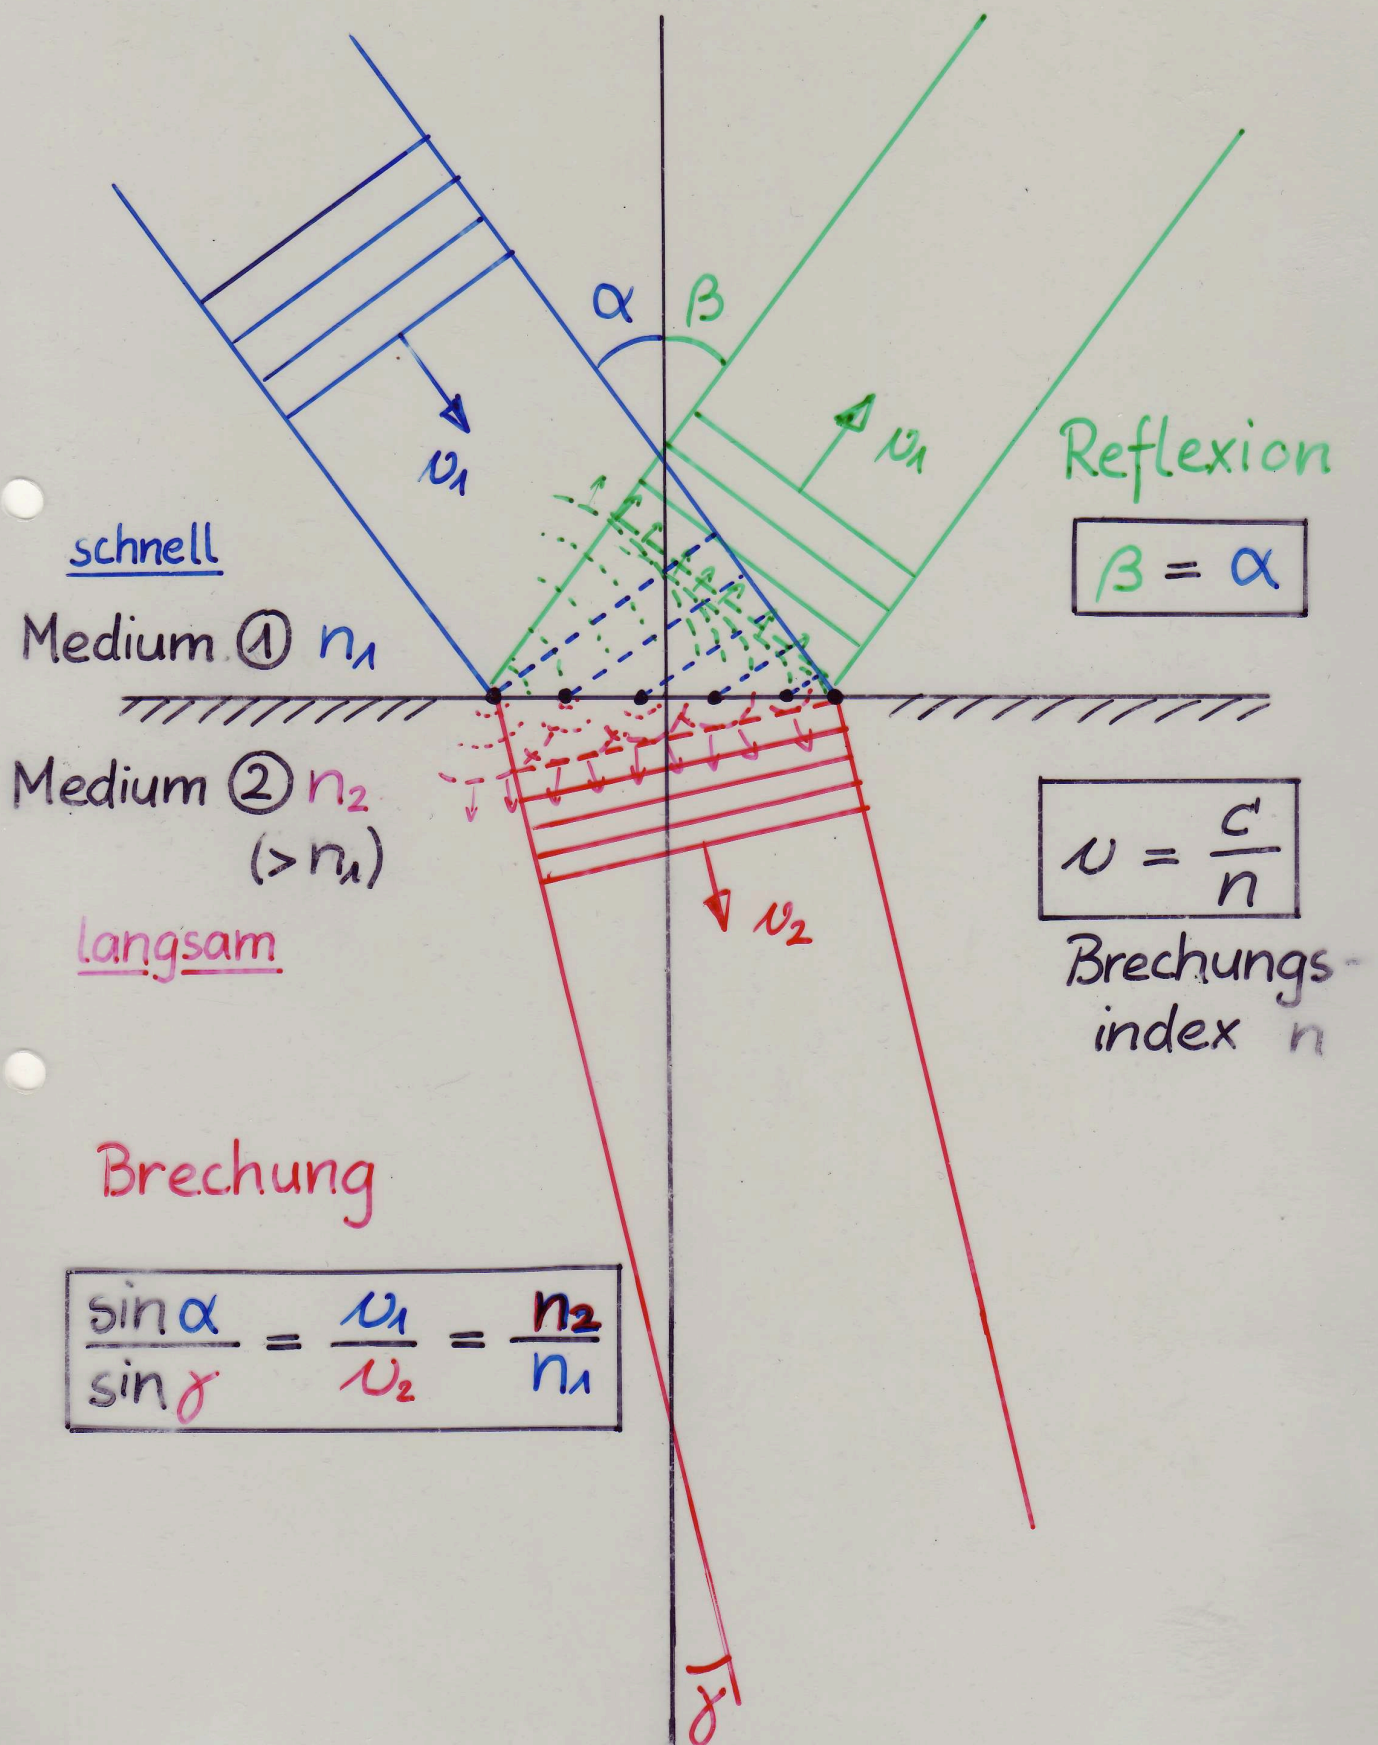 α β
v₁
v₁
Reflexion
β = α
schnell
Medium ① n₁
Medium ② n₂
(> n₁)
langsam
v₂
v = c/n
Brechungs-
index n
Brechung
sin α / sin γ = v₁ / v₂ = n₂ / n₁
γ